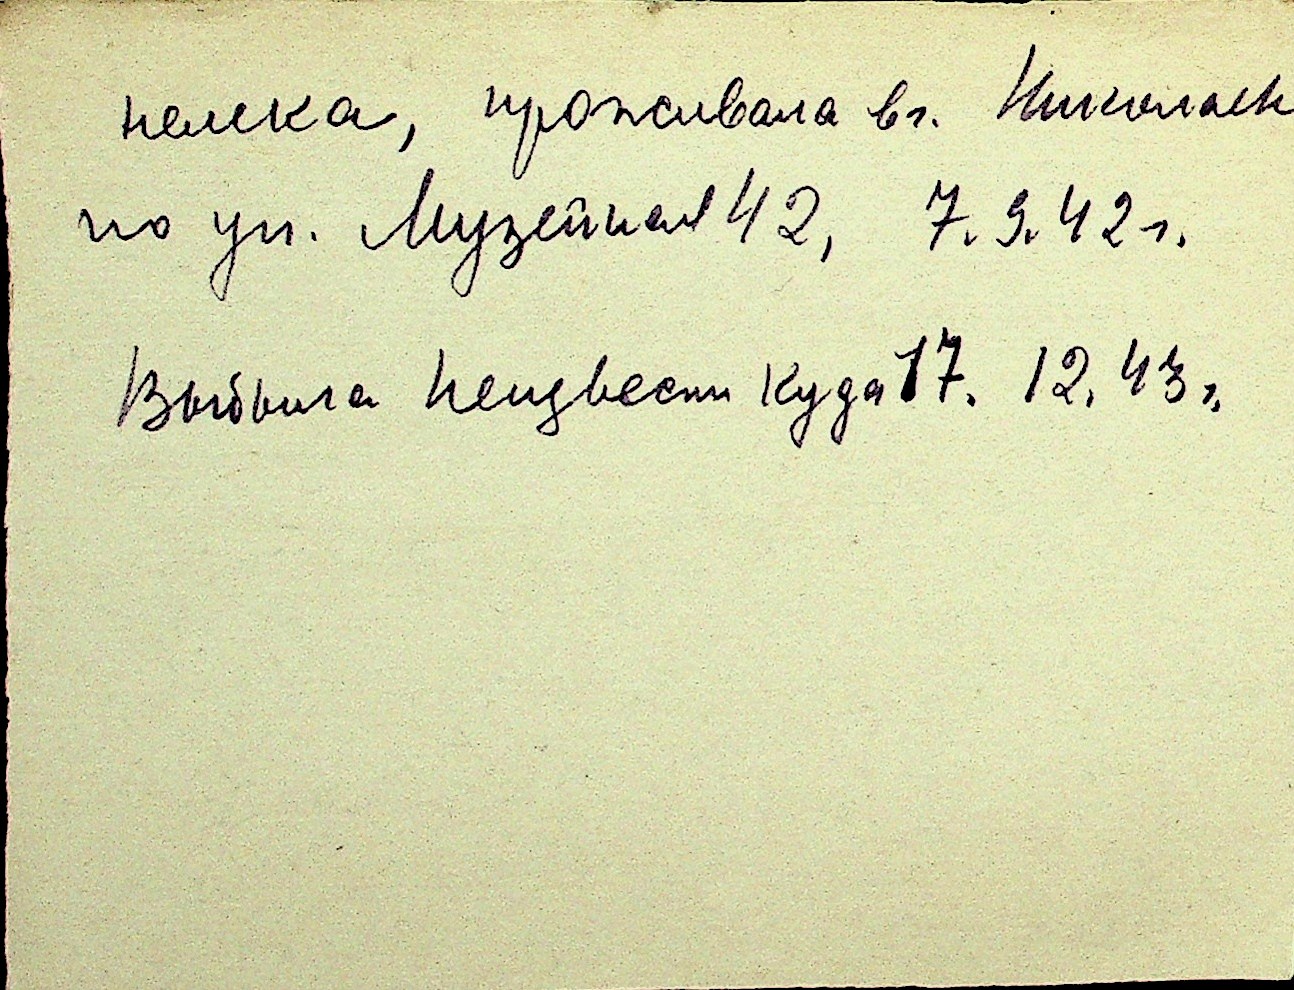 немека, проживала в г. Николаев
по ул. Музейная 42, 7.9.42 г.
Выбыла неизвестн куда 17. 12. 43 г.